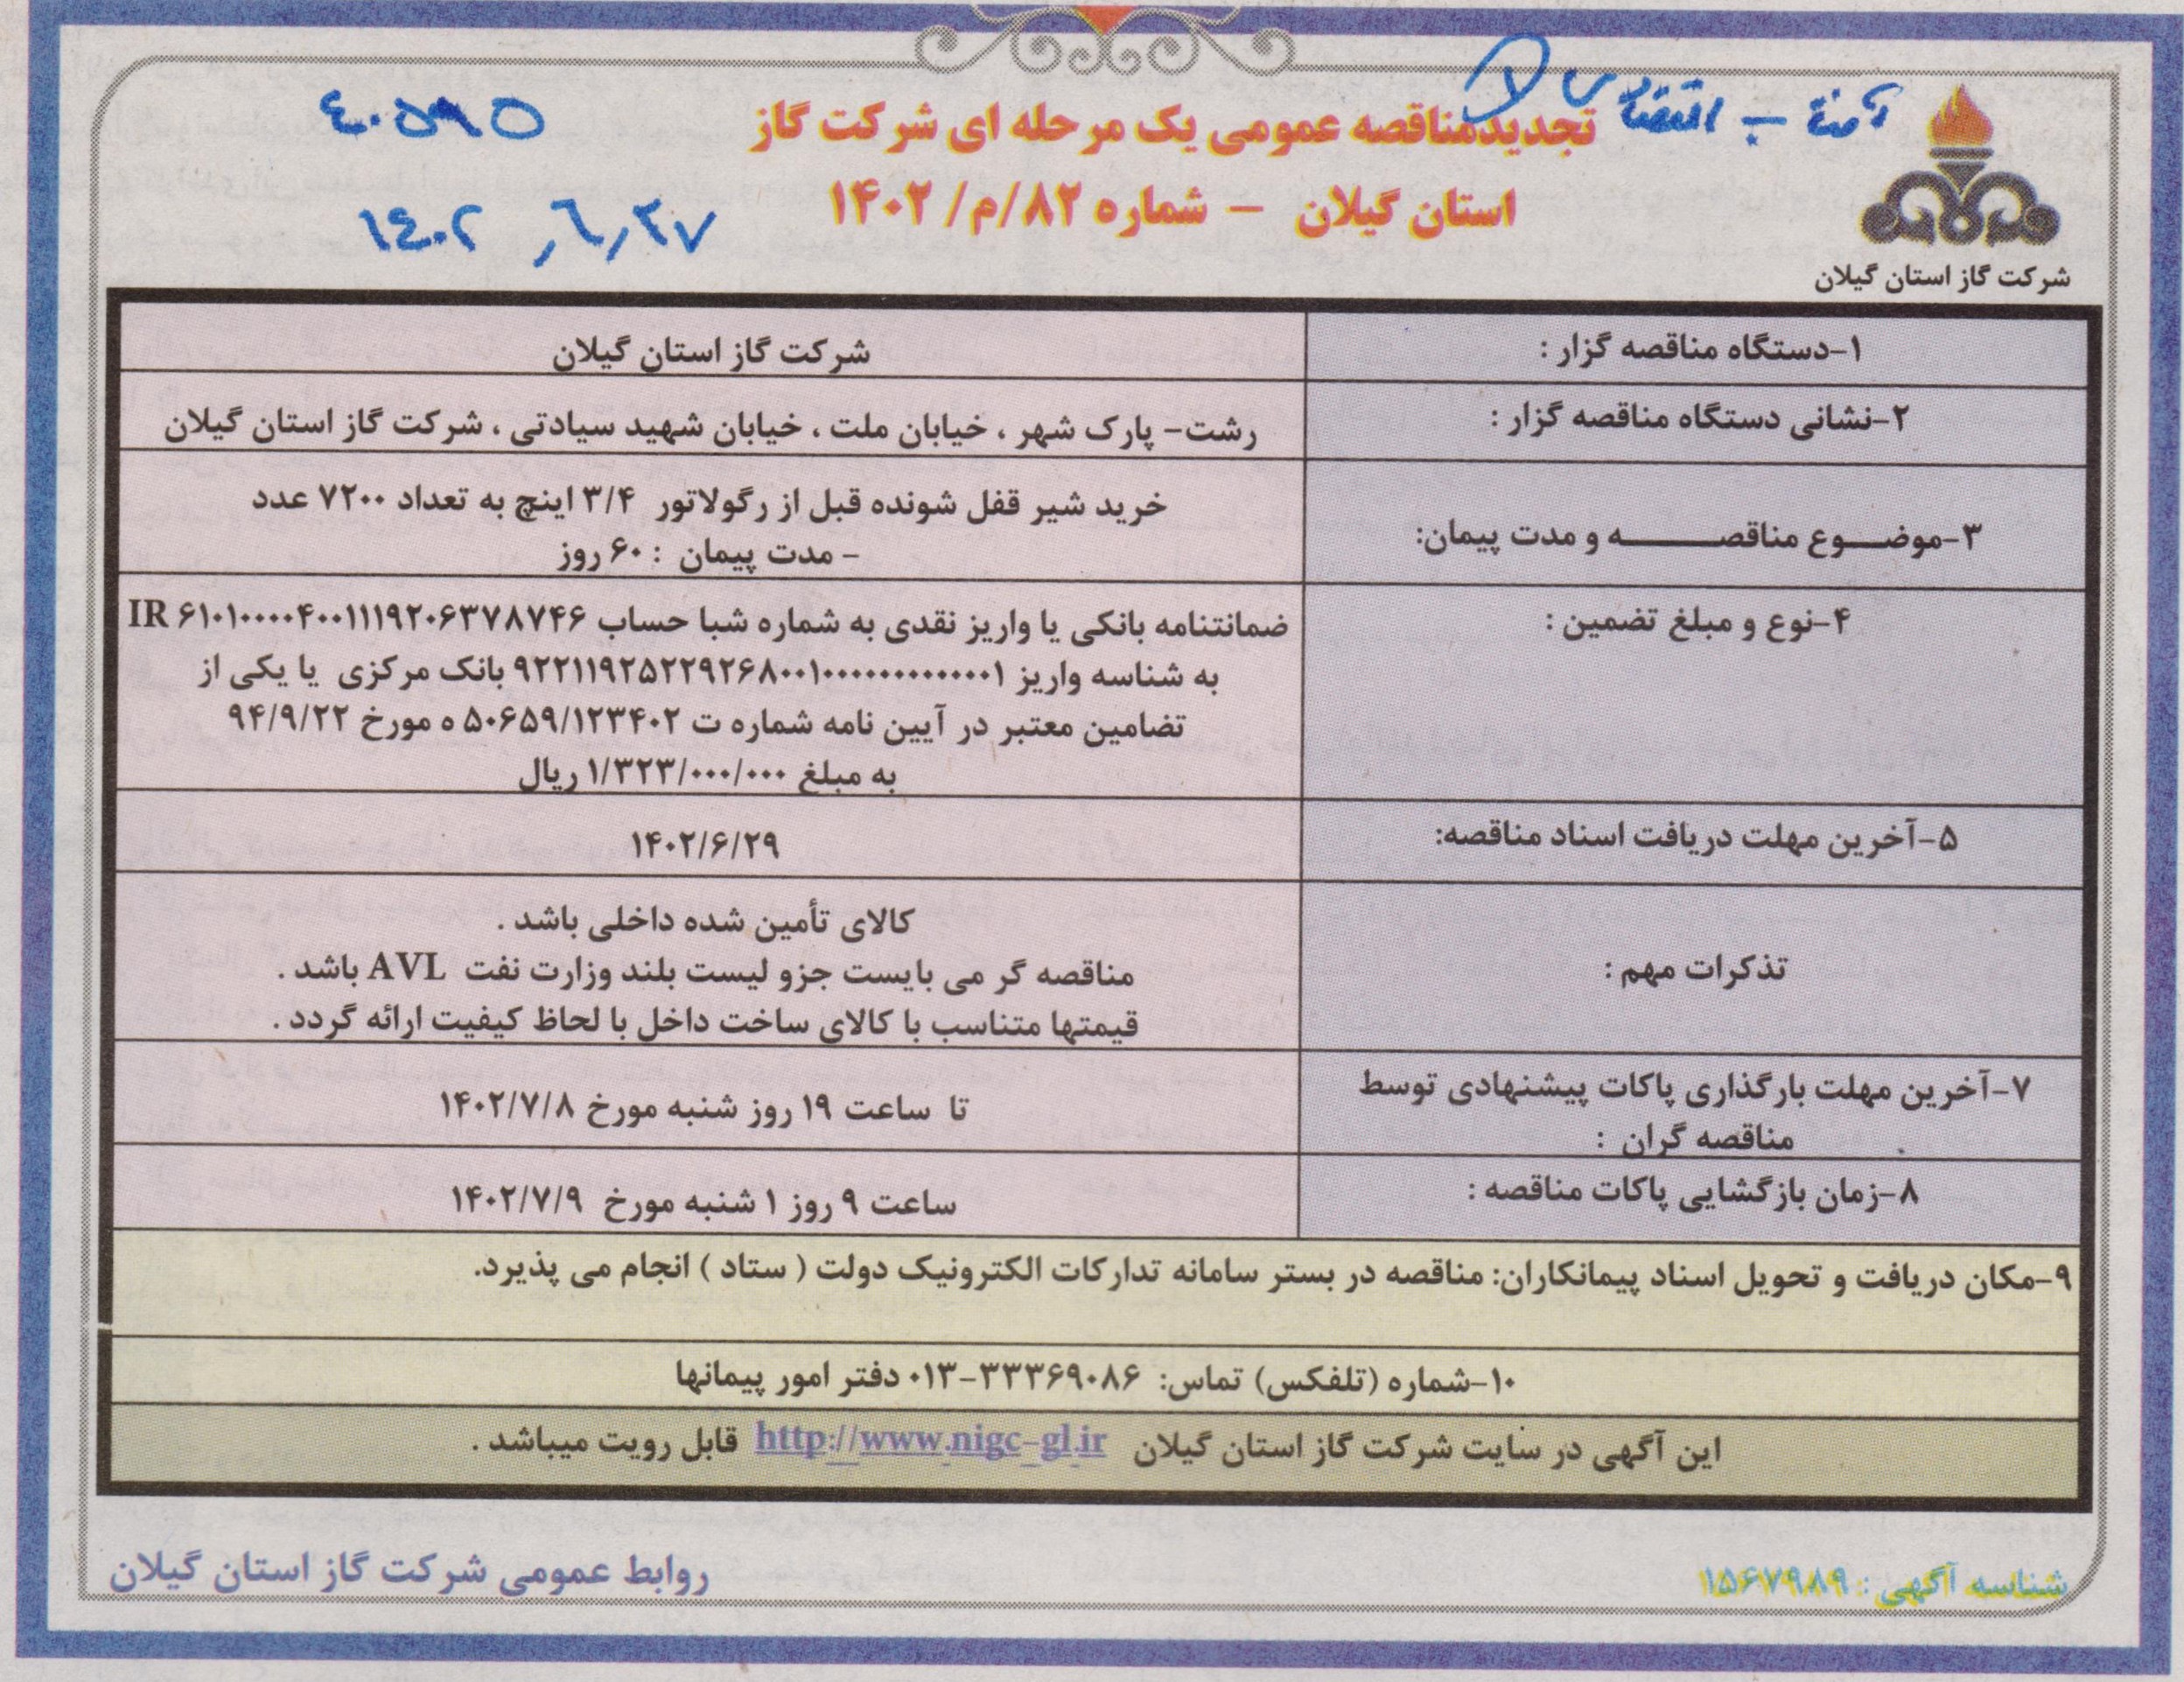 تجدیدمناقصه عمومی یک مرحله ای شرکت گاز
استان گیلان – شماره ۸۲/م/ ۱۴۰۲
٤٠٥٩٥
١٤٠٢
شرکت گاز استان گیلان
۱-دستگاه مناقصه گزار :
شرکت گاز استان گیلان
۲-نشانی دستگاه مناقصه گزار :
رشت- پارک شهر ، خیابان ملت ، خیابان شهید سیادتی ، شرکت گاز استان گیلان
۳-موضـــوع مناقصـــــــــه و مدت پیمان:
خرید شیر قفل شونده قبل از رگولاتور ۳/۴ اینچ به تعداد ۷۲۰۰ عدد
- مدت پیمان : ۶۰ روز
۴-نوع و مبلغ تضمین :
ضمانتنامه بانکی یا واریز نقدی به شماره شبا حساب IR ۶۱۰۱۰۰۰۰۴۰۰۱۱۱۹۲۰۶۳۷۸۷۴۶
به شناسه واریز بانک مرکزی یا یکی از
تضامین معتبر در آیین نامه شماره ت ۵۰۶۵۹/۱۲۳۴۰۲ ه مورخ ۹۴/۹/۲۲
به مبلغ ۱/۳۲۳/۰۰۰/۰۰۰ ریال
۵-آخرین مهلت دریافت اسناد مناقصه:
۱۴۰۲/۶/۲۹
تذکرات مهم :
کالای تأمین شده داخلی باشد .
مناقصه گر می بایست جزو لیست بلند وزارت نفت AVL باشد .
قیمتها متناسب با کالای ساخت داخل با لحاظ کیفیت ارائه گردد .
۷-آخرین مهلت بارگذاری پاکات پیشنهادی توسط
مناقصه گران :
تا ساعت ۱۹ روز شنبه مورخ ۱۴۰۲/۷/۸
۸-زمان بازگشایی پاکات مناقصه :
ساعت ۹ روز ۱ شنبه مورخ ۱۴۰۲/۷/۹
۹-مکان دریافت و تحویل اسناد پیمانکاران: مناقصه در بستر سامانه تدارکات الکترونیک دولت ( ستاد ) انجام می پذیرد.
۱۰-شماره (تلفکس) تماس: ۳۳۳۶۹۰۸۶-۰۱۳ دفتر امور پیمانها
این آگهی در سایت شرکت گاز استان گیلان http://www.nigc-gl.ir قابل رویت میباشد .
شناسه آگهی : ۱۵۶۷۹۸۹
روابط عمومی شرکت گاز استان گیلان